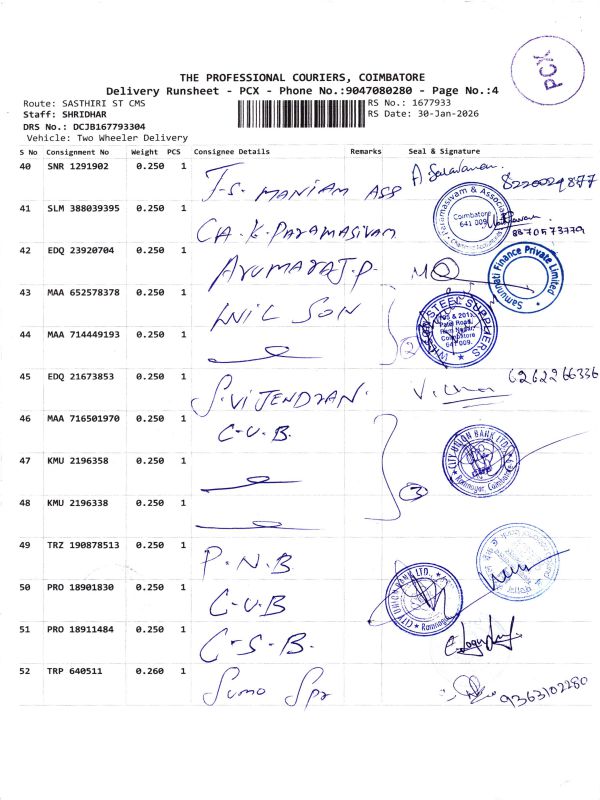 PCX
THE PROFESSIONAL COURIERS, COIMBATORE
Delivery Runsheet - PCX - Phone No.:9047080280 - Page No.:4
Route: SASTHIRI ST CMS
RS No.: 1677933
Staff: SHRIDHAR
RS Date: 30-Jan-2026
DRS No.: DCJB167793304
Vehicle: Two Wheeler Delivery
S No Consignment No Weight PCS Consignee Details Remarks Seal & Signature
40 SNR 1291902 0.250 1 J-S. MANIAM ASS A Saravanan 8220029877
41 SLM 388039395 0.250 1 CA. K. Paramasivam Paramasivam & Associates Coimbatore 641 009. 8870573779
42 EDQ 23920704 0.250 1 Arumaraj.P. Samunnati Finance Private Limited
43 MAA 652578378 0.250 1 WIL SON STEEL SUPPLIERS Patel Road, Ram Nagar, Coimbatore 641 009.
44 MAA 714449193 0.250 1 2
45 EDQ 21673853 0.250 1 S. VIJENDRAN. 6262266336
46 MAA 716501970 0.250 1 C.U.B. CITY UNION BANK LTD. Ramnagar,
47 KMU 2196358 0.250 1 3
48 KMU 2196338 0.250 1
49 TRZ 190878513 0.250 1 P.N.B
50 PRO 18901830 0.250 1 C-U.B CITY UNION BANK LTD. Ramnagar
51 PRO 18911484 0.250 1 C-S-B.
52 TRP 640511 0.260 1 Sumo Spr 9363102280